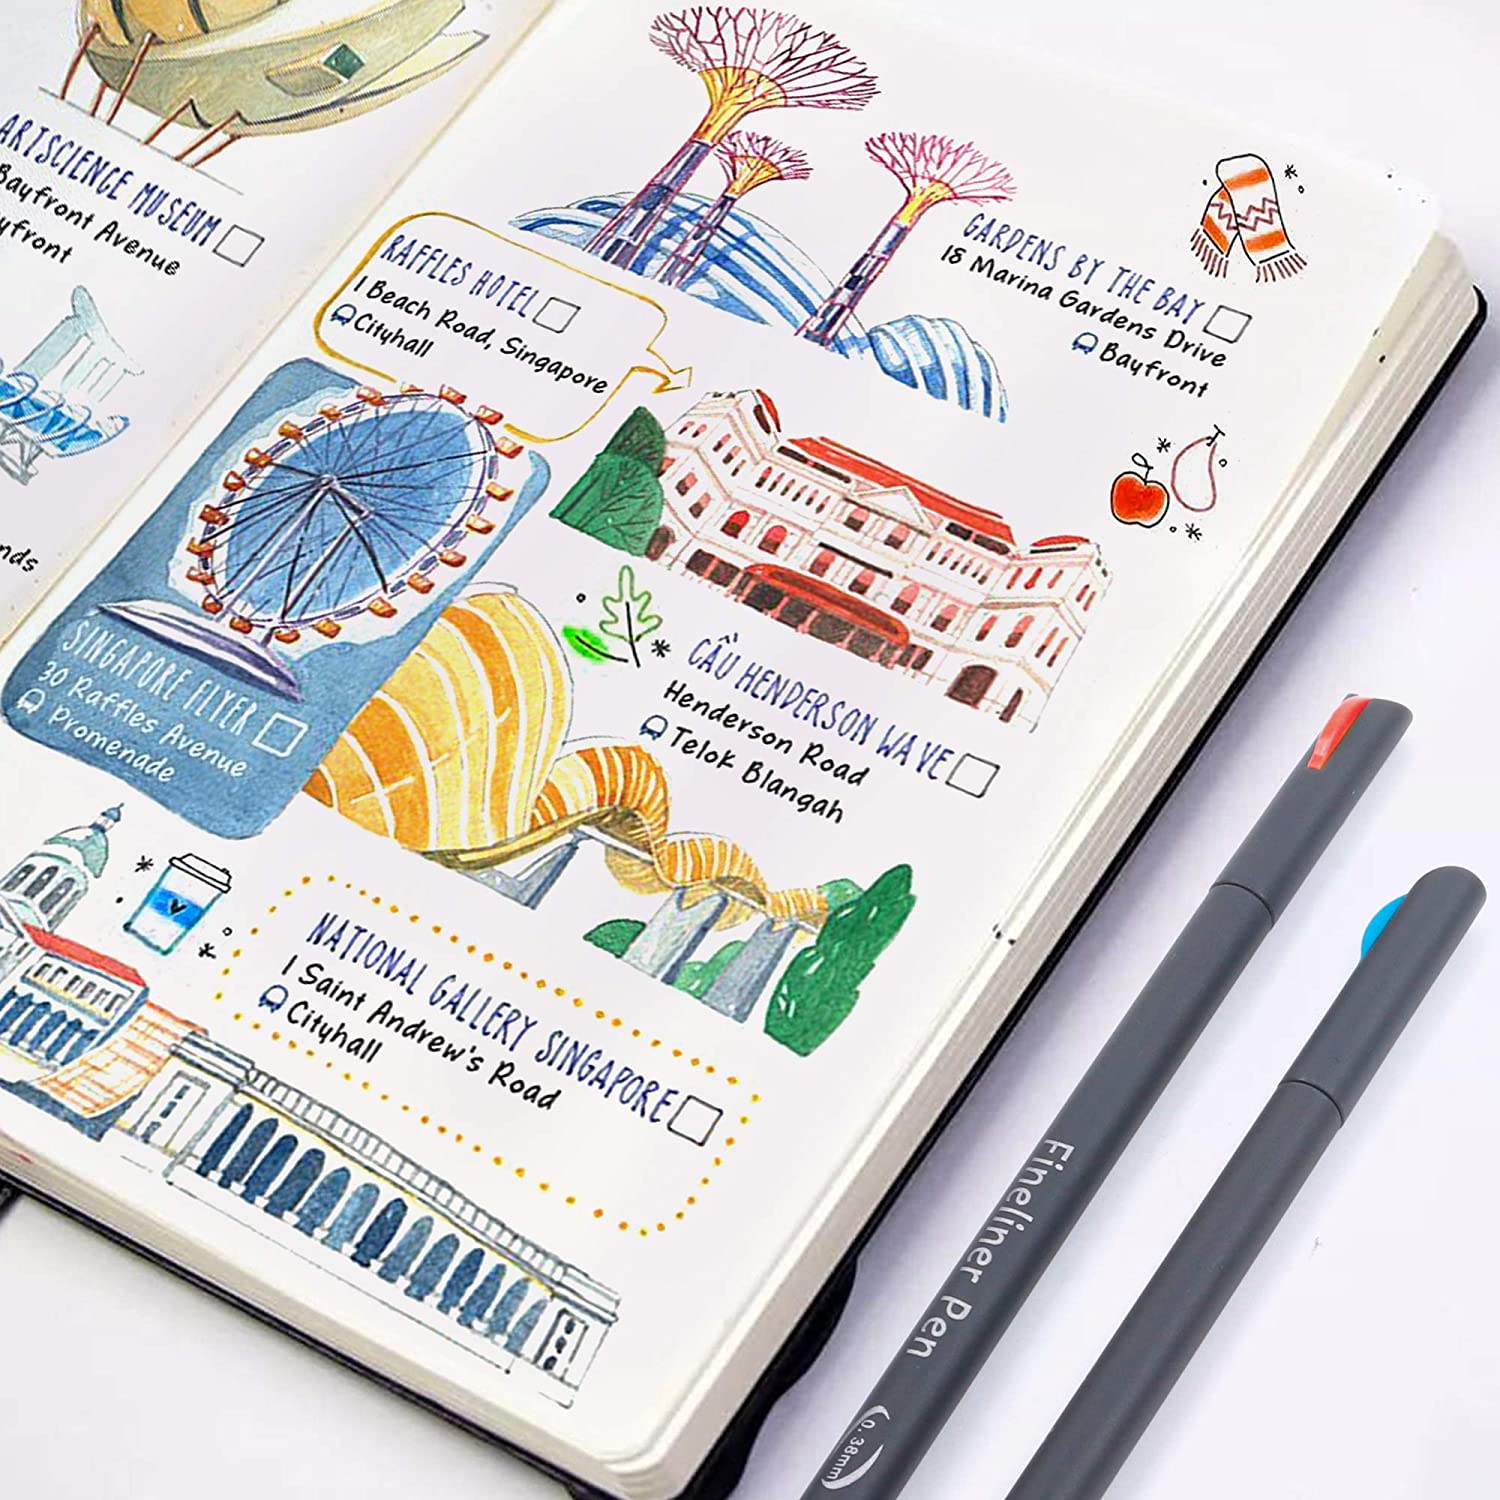 ARTSCIENCE MUSEUM
Bayfront Avenue
GARDENS BY THE BAY
18 Marina Gardens Drive
Bayfront
RAFFLES HOTEL
1 Beach Road, Singapore
Cityhall
SINGAPORE FLYER
30 Raffles Avenue
Promenade
CẦU HENDERSON WAVE
Henderson Road
Telok Blangah
NATIONAL GALLERY SINGAPORE
1 Saint Andrew's Road
Cityhall
Fineliner Pen
0.38mm